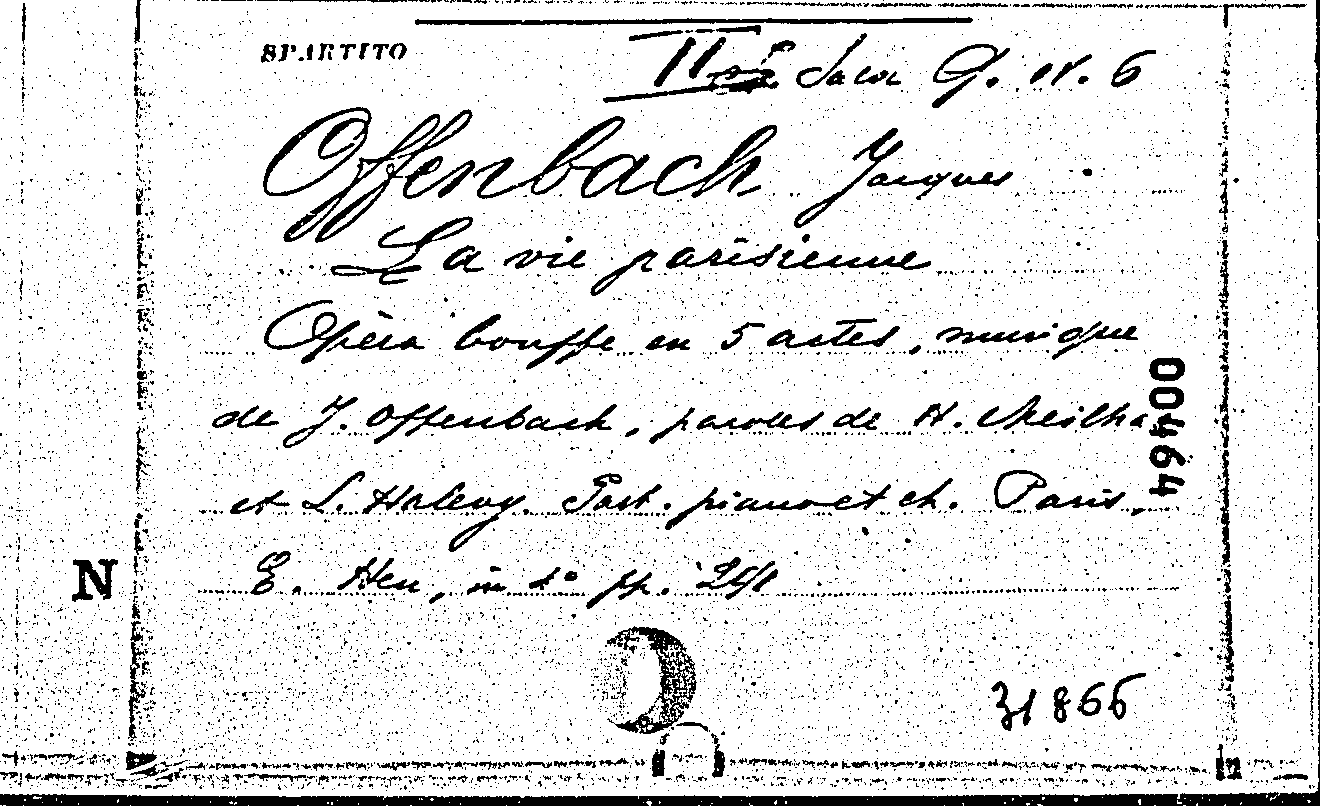 SPARTITO
II Sala G. IV. 6
Offenbach Jacques
La vie parisienne
Opèra bouffe en 5 actes, musique
de J. Offenbach, paroles de H. Meilha
et L. Halevy. Part. piano et ch. Paris,
00464
N
E. Heu, in 4° pp. 241
31866